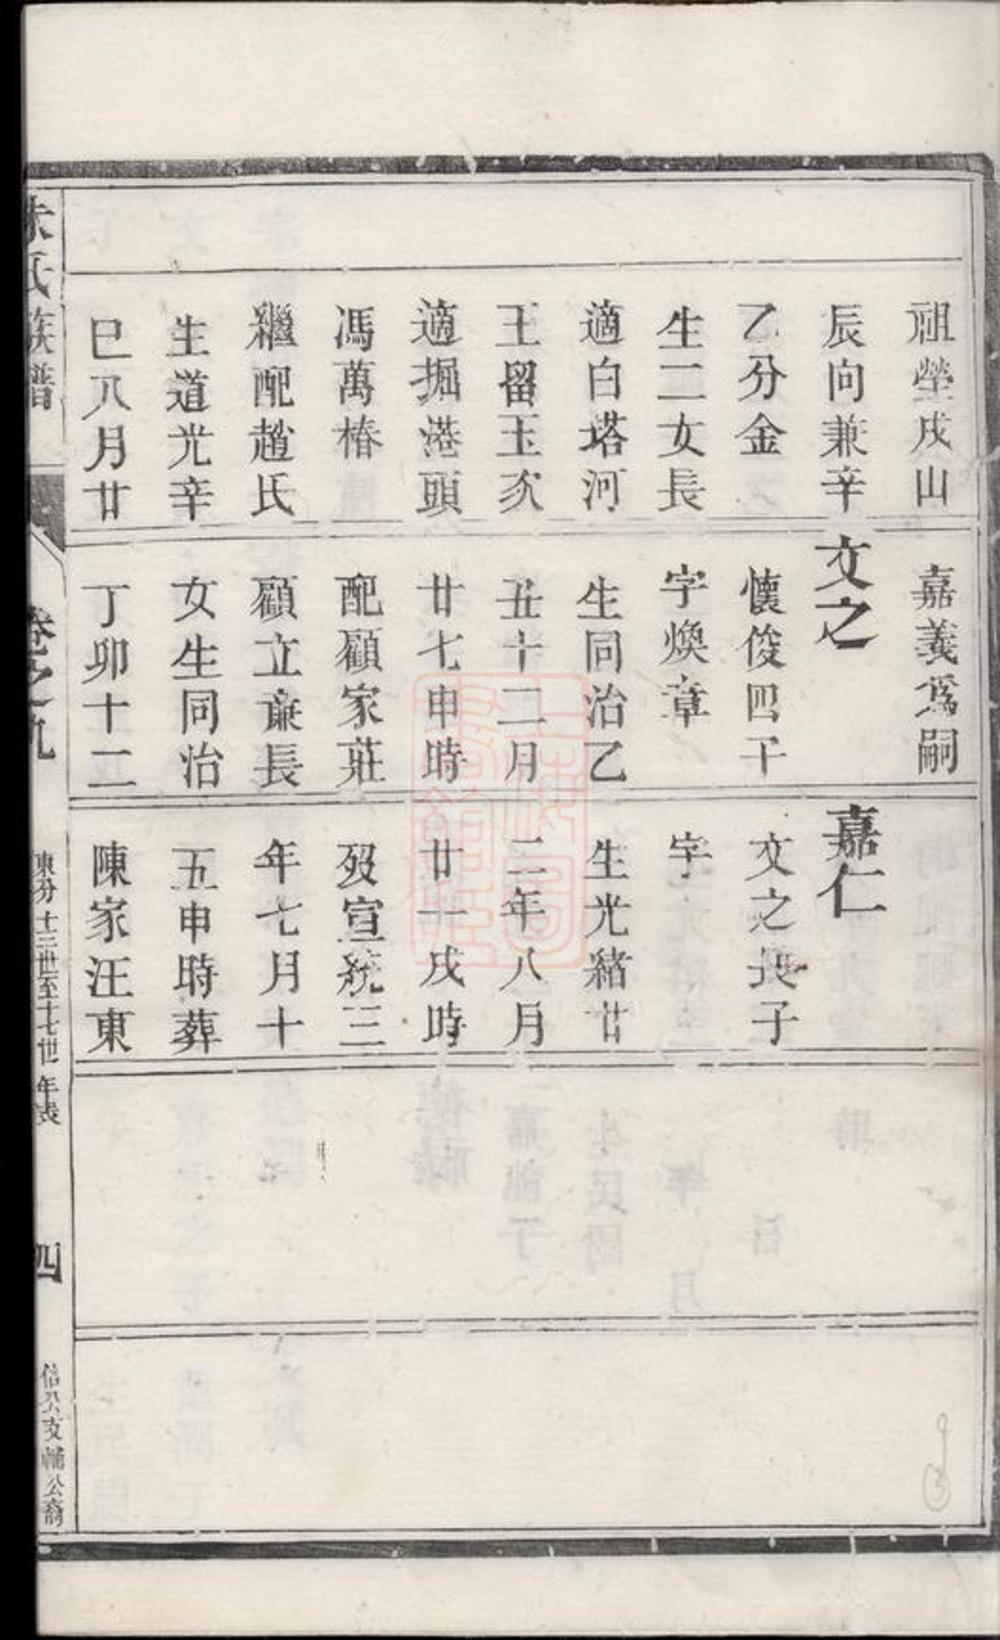 祖塋戌山
辰向兼辛
乙分金
生二女長
適白塔河
王留玉次
適掘港頭
馮萬椿
繼配趙氏
生道光辛
巳八月廿
嘉義為嗣
文之
懷俊四子
字煥章
生同治乙
丑十二月
廿七申時
配顧家莊
顧立廉長
女生同治
丁卯十二
嘉仁
文之長子
字
生光緒廿
二年八月
廿一戌時
歿宣統三
年七月十
五申時葬
陳家汪東
氏族譜
卷之九
東分十三世至十七世年表
四
信公支輔公裔